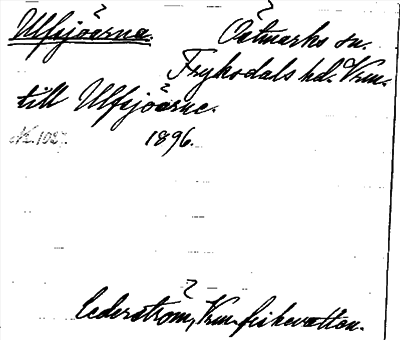 Ulfsjöarna. Östmarks sn.
Fryksdals hd. Vrm.
till Ulfsjöarne.
1896.
Cederström, Vrm. fiskevatten.